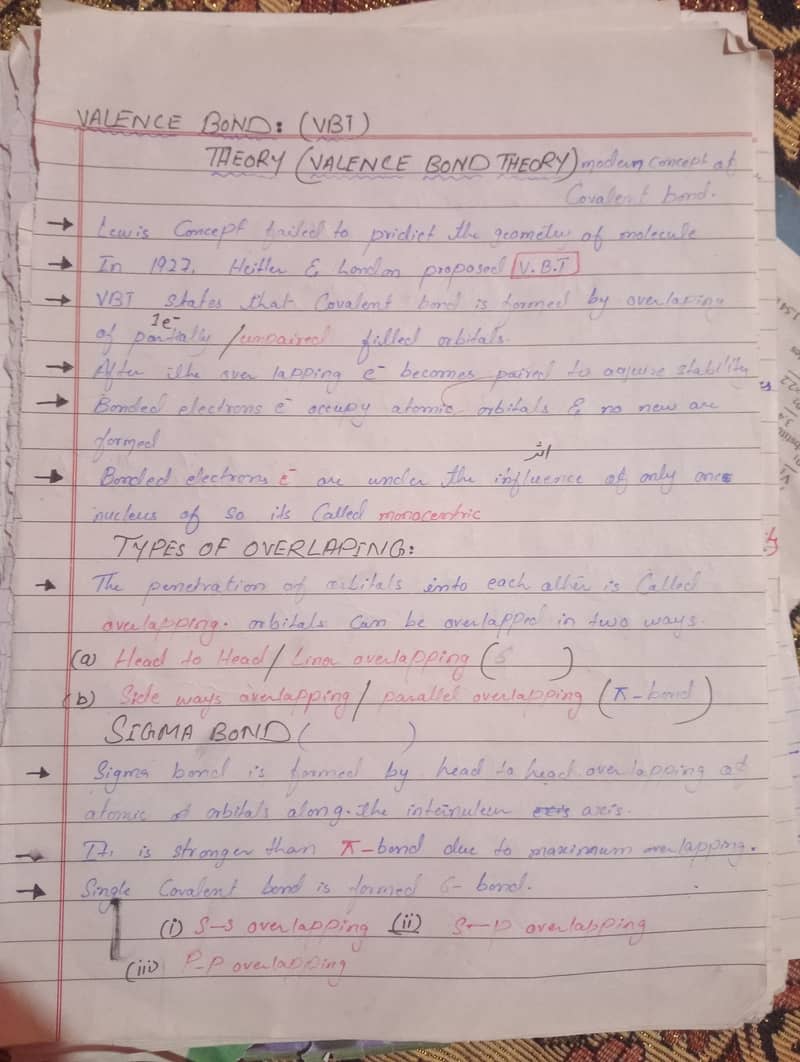 VALENCE BOND: (VBT)
THEORY (VALENCE BOND THEORY) modern concept of
Covalent bond.
→ Lewis Concept failed to pridict the geometry of molecule
→ In 1927, Heitler & London proposed V.B.T
→ VBT states that Covalent bond is formed by overlaping
1e⁻
of partially / unpaired filled orbitals.
→ After the over lapping e⁻ becomes paired to aquire stability
→ Bonded electrons e⁻ occupy atomic orbitals & no new are
formed
اثر
→ Bonded electrons e⁻ are under the influence of only one
nucleus of so its Called monocentric
TYPES OF OVERLAPING:
→ The penetration of orbitals into each other is Called
overlapping. orbitals Can be overlapped in two ways.
(a) Head to Head / Linar overlapping (S )
(b) Side ways overlapping / parallel overlapping (π-bond)
SIGMA BOND ( )
→ Sigma bond is formed by head to head over lapping of
atomic orbitals along the axis.
→ It, is stronger than π-bond due to maximum overlapping.
→ Single Covalent bond is formed 6-bond.
(i) S-S overlapping (ii) S-P overlapping
(iii) P-P overlapping